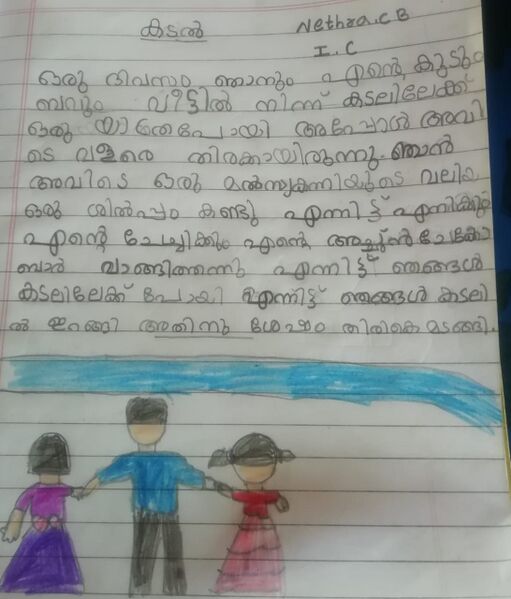 കടൽ
Nethra.C B
I.C
ഒരു ദിവസം ഞാനും എന്റെ കുടും
ബവും വീട്ടിൽ നിന്ന് കടലിലേക്ക്
ഒരു യാത്രപോയി അപ്പോൾ അവി
ടെ വളരെ തിരക്കായിരുന്നു. ഞാൻ
അവിടെ ഒരു മൽസ്യകന്നിയുടെ വലിയ
ഒരു ശിൽപ്പം കണ്ടു എന്നിട്ട് എനിക്കും
എന്റെ ചേച്ചിക്കും എന്റെ അച്ഛൻ ചോക്കോ
ബാർ വാങ്ങിതന്നു എന്നിട്ട് ഞങ്ങൾ
കടലിലേക്ക് പോയി എന്നിട്ട് ഞങ്ങൾ കടലി
ൽ ഇറങ്ങി അതിനു ശേഷം തിരികെ മടങ്ങി.